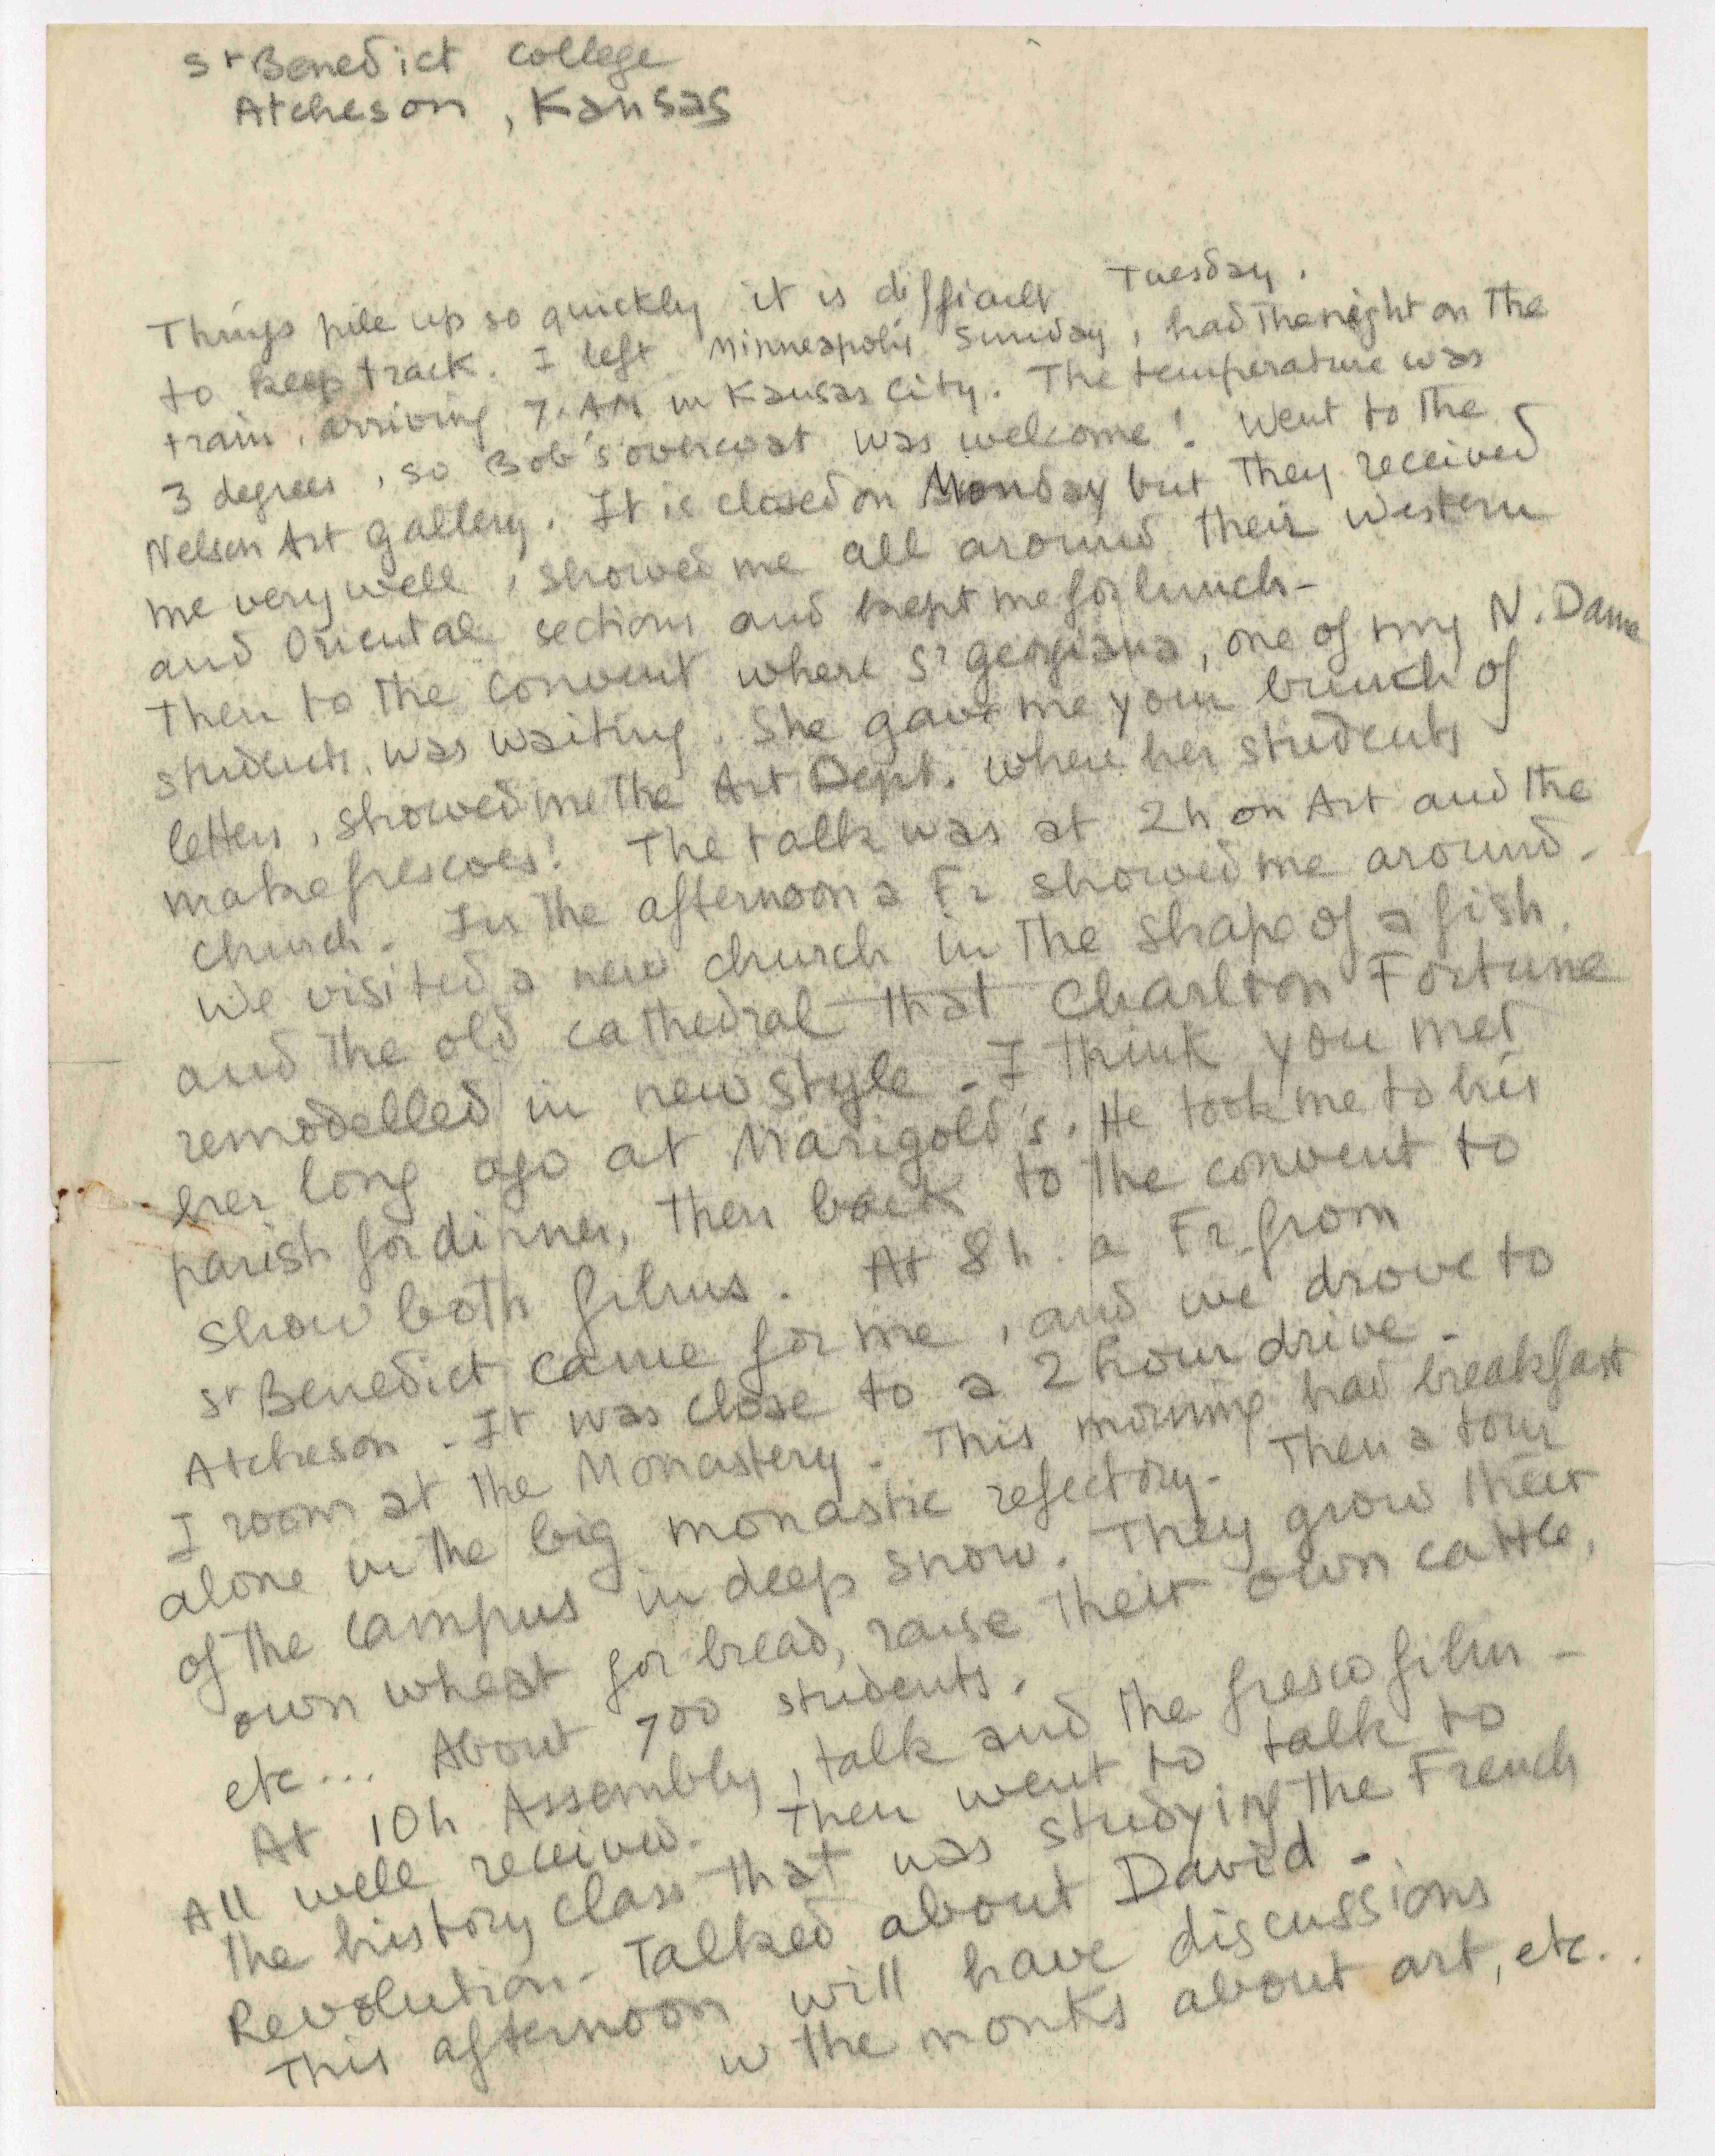 St Benedict College
Atcheson, Kansas
Tuesday.
Things pile up so quickly it is difficult
to keep track. I left Minneapolis Sunday, had the night on the
train, arriving 7. AM in Kansas City. The temperature was
3 degrees, so Bob's overcoat was welcome! Went to the
Nelson Art gallery. It is closed on Monday but they received
me very well, showed me all around their Western
and Oriental sections and kept me for lunch-
Then to the convent where Sr Georgiana, one of my N. Dame
students, was waiting. She gave me your bunch of
letters, showed me the Art Dept. where her students
make frescoes! The talk was at 2h on Art and the
church. In the afternoon a Fr showed me around.
We visited a new church in the shape of a fish.
and the old cathedral that Charlton Fortune
remodelled in new style - I think you met
her long ago at Marigold's. He took me to his
parish for dinner, then back to the convent to
show both films. At 8h. a Fr from
St Benedict came for me, and we drove to
Atcheson - It was close to a 2 hour drive -
I room at the Monastery. This morning had breakfast
alone in the big monastic refectory. Then a tour
of the campus in deep snow. They grow their
own wheat for bread, raise their own cattle,
etc... About 700 students.
At 10h Assembly, talk and the fresco film -
All well received. Then went to talk to
the history class that was studying the French
Revolution - Talked about David -
This afternoon will have discussions
w the monks about art, etc..